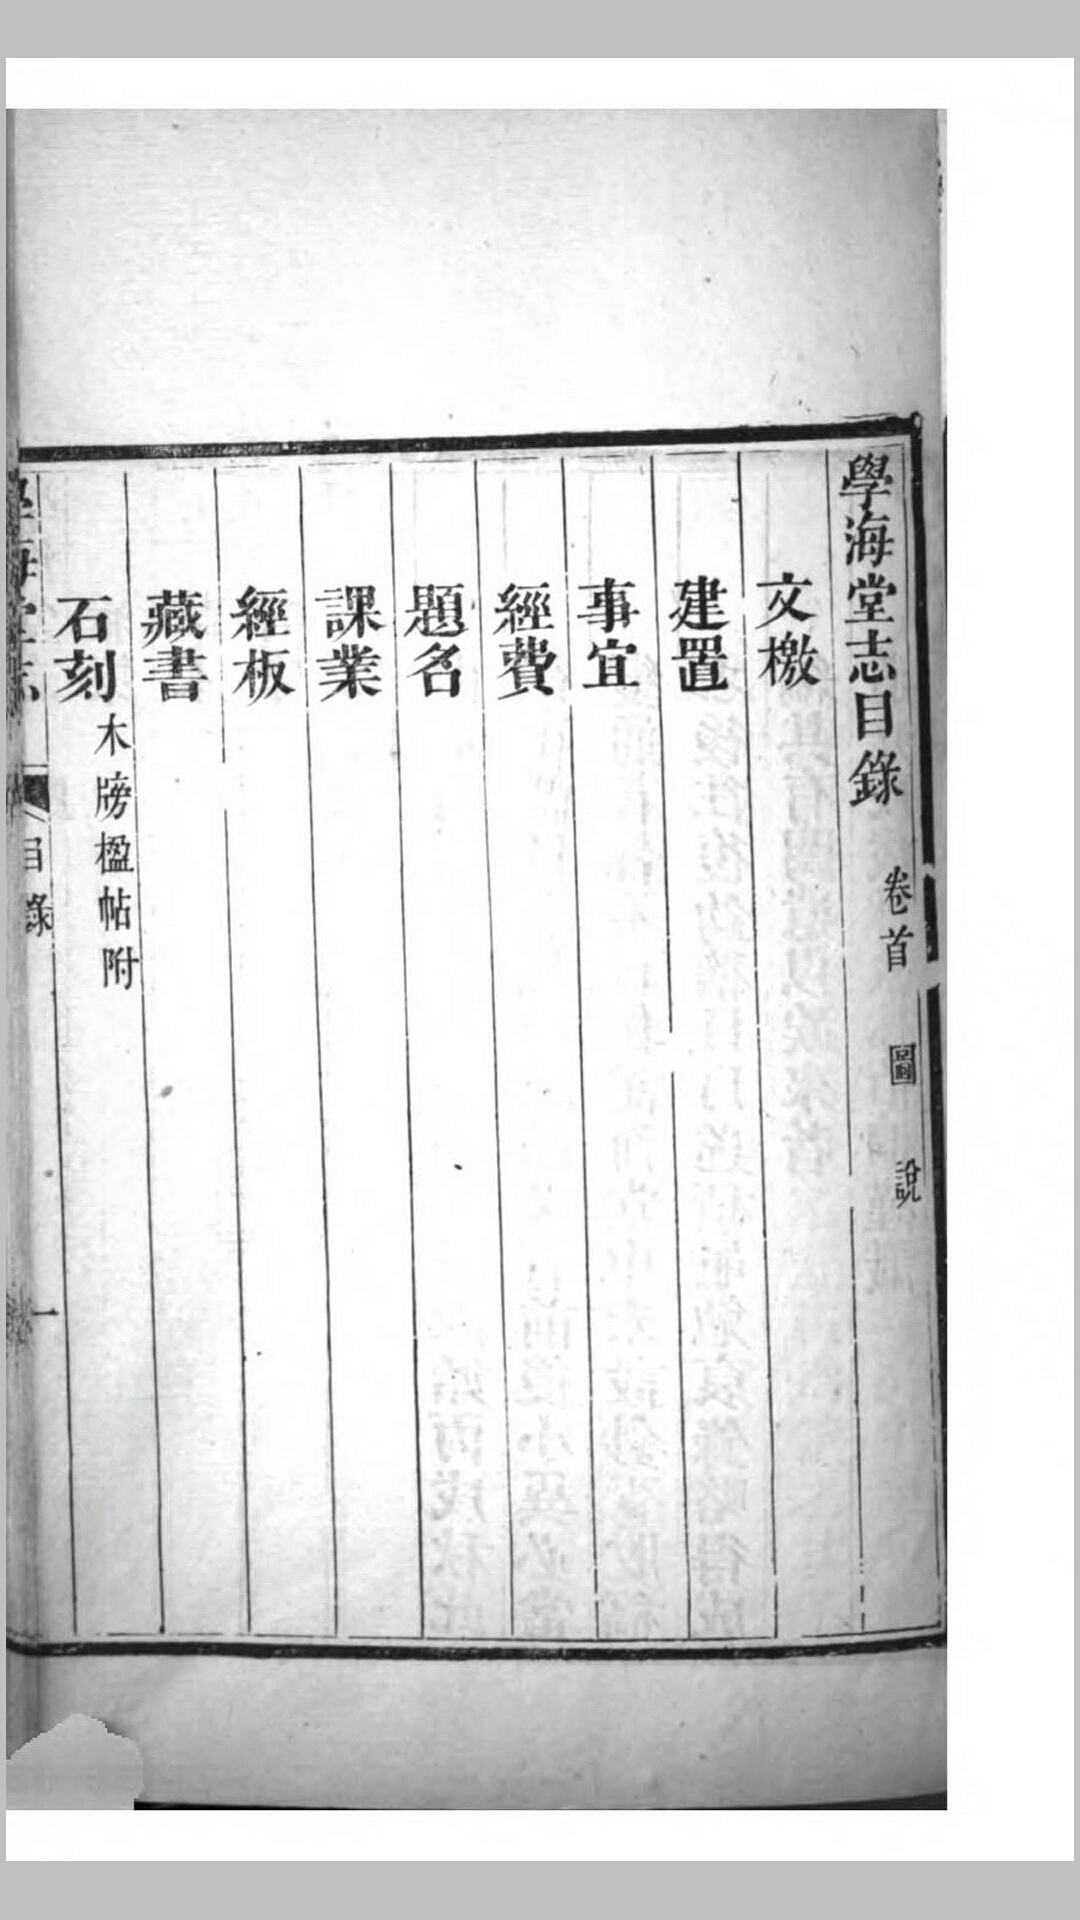 學海堂志目錄 卷首 圖說
文檄
建置
事宜
經費
題名
課業
經板
藏書
石刻 木牓楹帖附
目錄
一